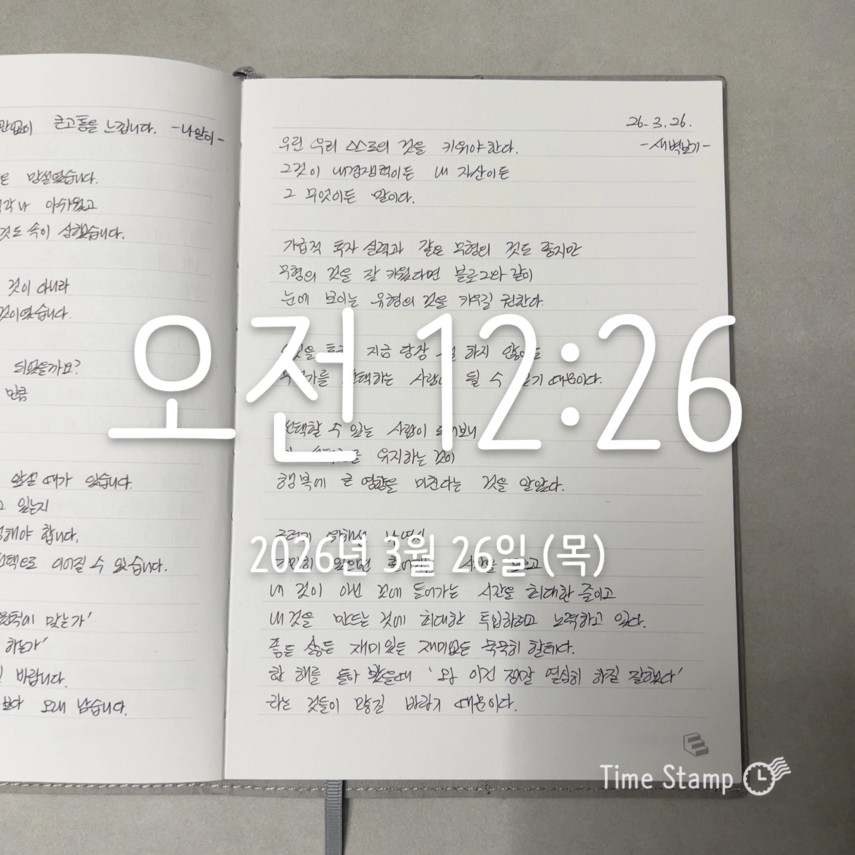 큰고통을 느낍니다. -나알이-
망설였습니다.
아쉬웠고
것도 속이 상했습니다.
것이 아니라
것이었습니다.
되었을까요?
만큼
때가 있습니다.
있는지
해야 합니다.
이어질 수 있습니다.
맞는가'
하는가'
바랍니다.
오래 남습니다.
26. 3. 26.
-새벽날기-
우린 우리 스스로의 것을 키워야 한다.
그것이 내 경쟁력이든 내 자산이든
그 무엇이든 말이다.
가급적 투자 실력과 같은 무형의 것도 좋지만
무형의 것을 잘 키웠다면 블로그와 같이
눈에 보이는 유형의 것을 키우길 권한다.
지금 당장 하지 않아도
선택하는 사람이 될 수 있기 때문이다.
선택할 수 있는 사람이 되어보니
유지하는 것이
행복에 큰 영향을 미친다는 것을 알았다.
오전 12:26
2026년 3월 26일 (목)
내 것이 아닌 곳에 들어가는 시간을 최대한 줄이고
내것을 만드는 것에 최대한 투입하려고 노력하고 있다.
좀든 싫든 재미있든 재미없든 묵묵히 할테다.
한 해를 돌아 봤을때 '와 이건 정말 열심히 하길 잘했다'
라는 것들이 많길 바라기 때문이다.
Time Stamp